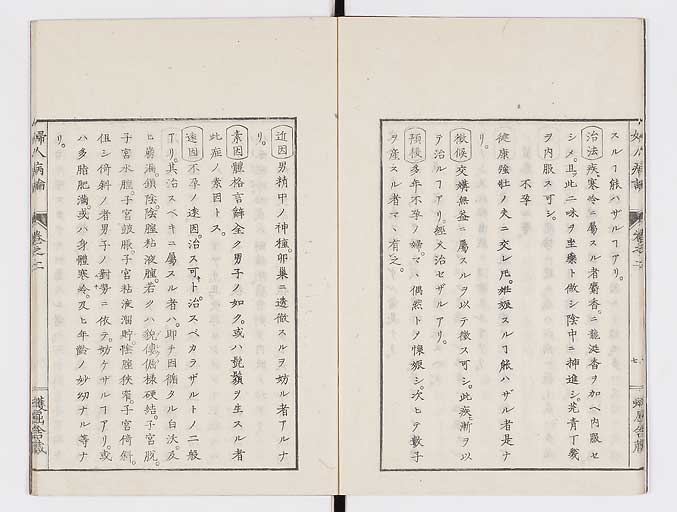 スルヿ能ハザルヿアリ。
治法 疾、寒冷ニ屬スル者麝香。ニ龍涎香ヲ加ヘ内服セ
シメ。且ツ此ニ味ヲ坐藥ト做シ陰中ニ挿進シ。芫菁丁幾
ヲ内服ス可シ。
不孕
健康強壯ノ夫ニ交レ𪜈。姙娠スルヿ能ハザル者是ナ
リ。
徴候 交媾無益ニ屬スルヲ以テ徴ス可シ。此疾漸ヲ以
テ治ルヿアリ。經久治セザルヿアリ。
預後 多年不孕ノ婦。マヽ偶然トメ懐娠シ。次ヒテ數子
ヲ産スル者マヽ有之。
近因 男精中ノ神種。卵巢ニ透徹スルヲ妨ル者アルナ
リ。
素因 體格言解全ク男子ノ如ク。或ハ髭鬚ヲ生スル者
此症ノ素因トス。
遠因 不孕ノ遠因。治ス可ト。治スベカラザルトノ二般
アリ。其治スベキニ屬スル者ハ。即チ因循タル白沃。及
ヒ崩漏。鎖陰。陰腟粘液腫。若クハ
子宮水腫。子宮鼓脹。子宮粘液溜貯。陰腟狹窄。子宮倚斜。
但シ倚斜ノ者男子ノ對勢ニ依テ。妨ケザルヿアリ。或
ハ多脂肥満。或ハ身體寒冷。及ヒ年齡ノ妙幼ナル等ナ
リ。
婦人病論
卷之二